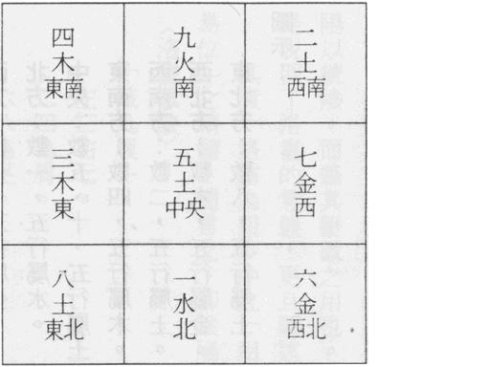 四木東南
九火南
二土西南
三木東
五土中央
七金西
八土東北
一水北
六金西北